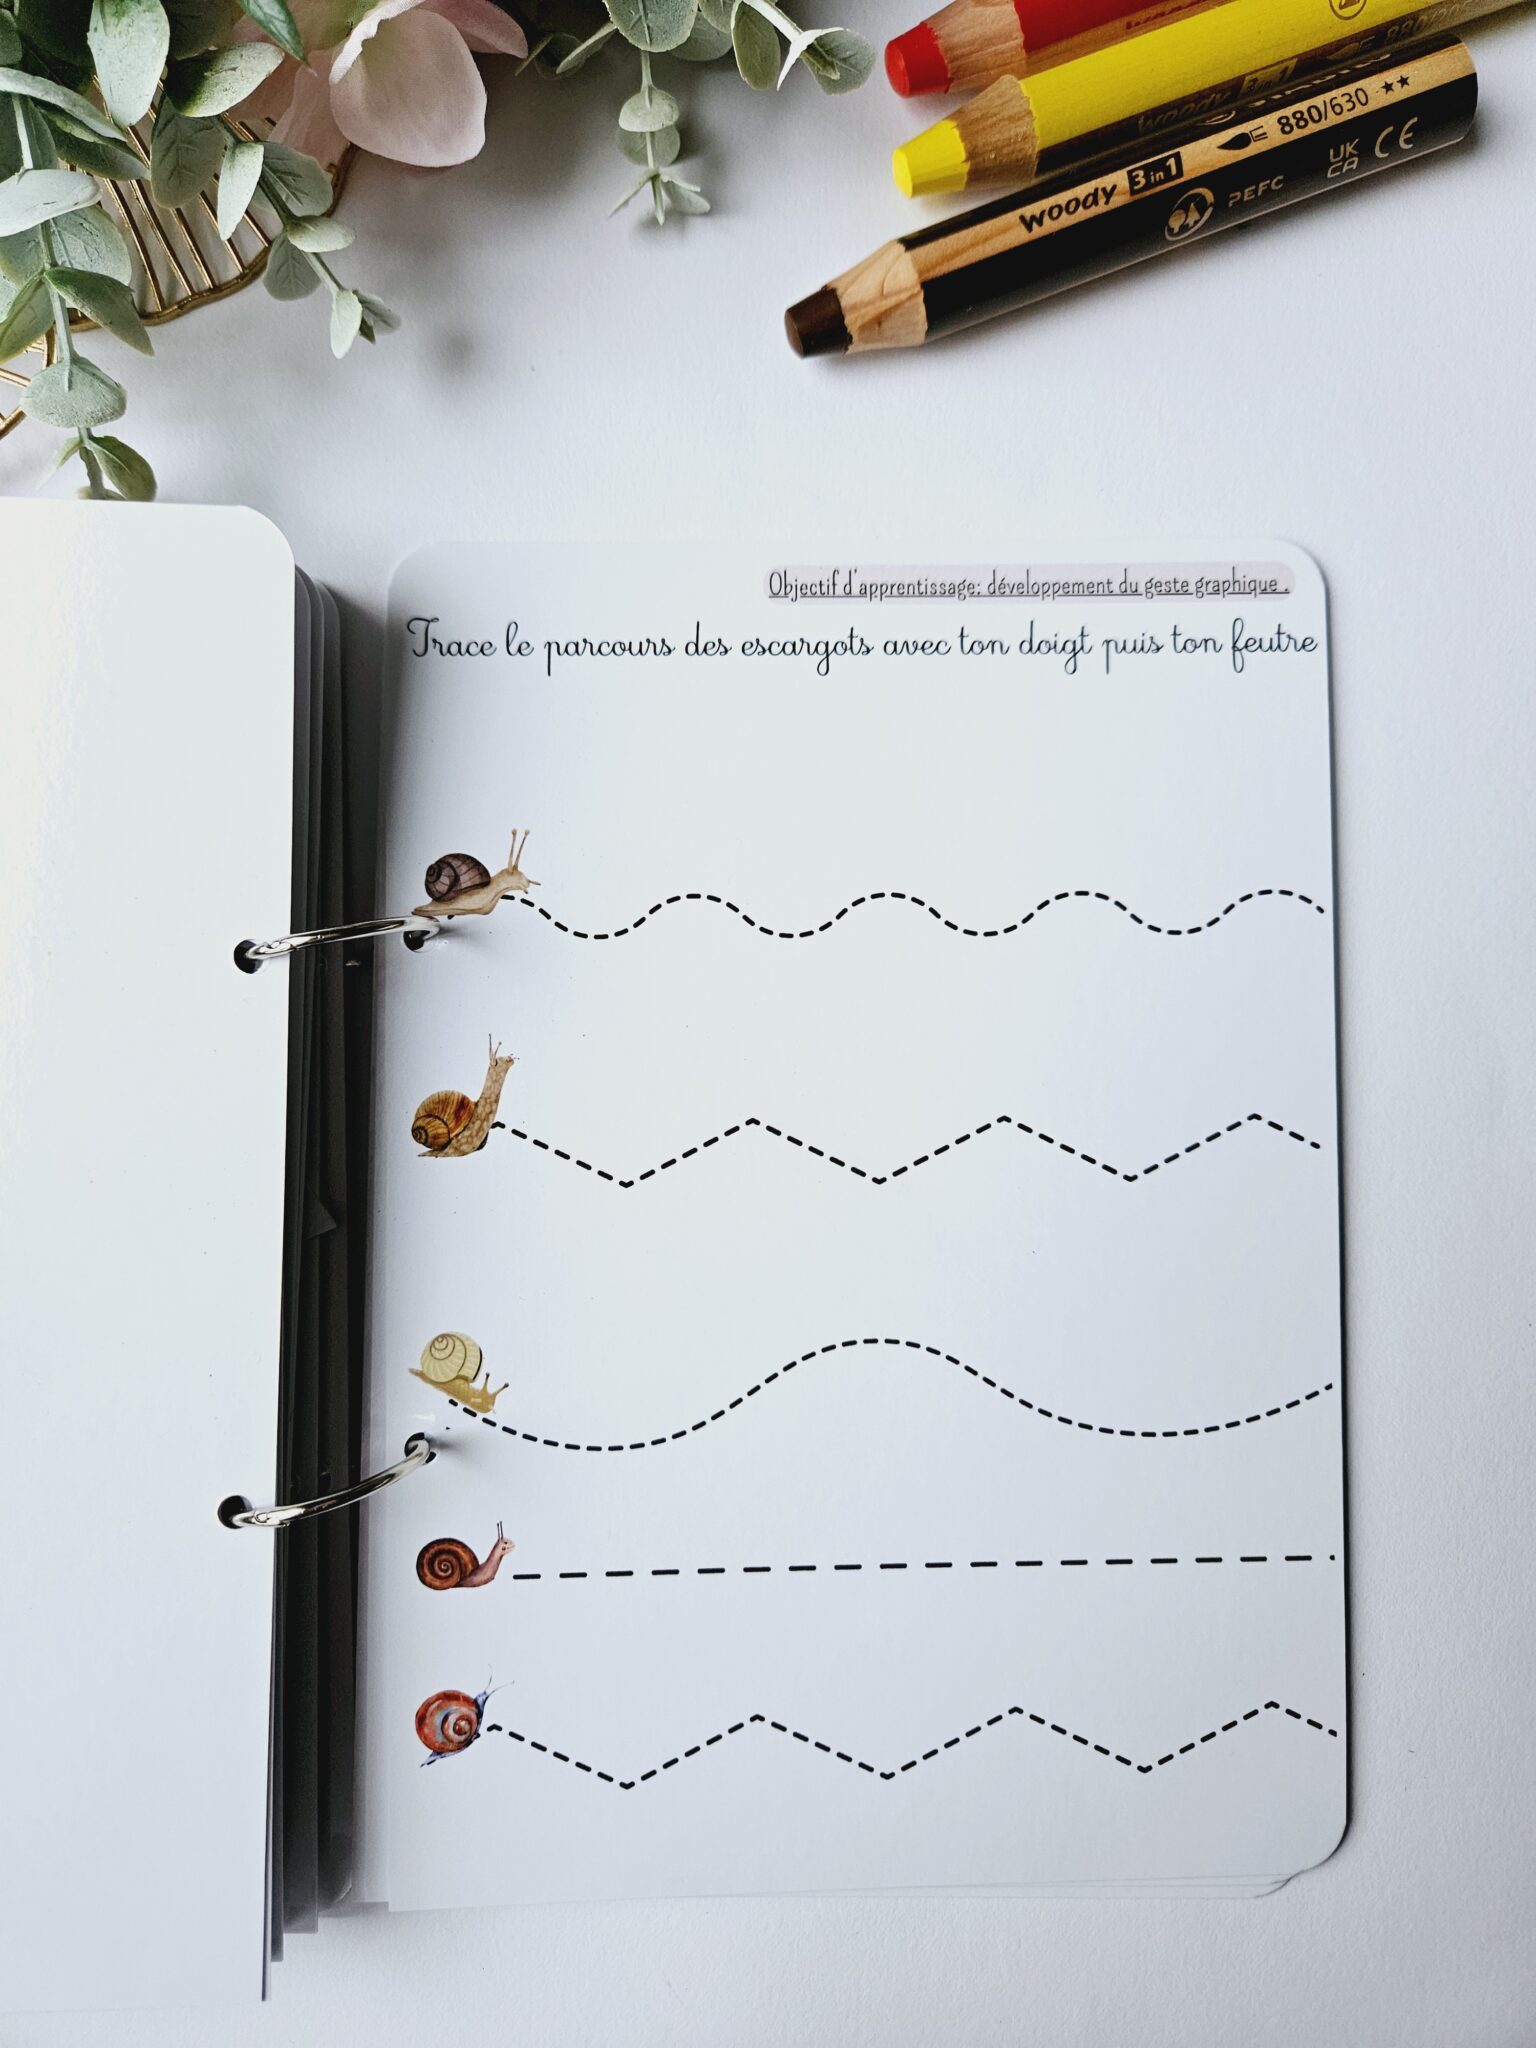 woody 3 in 1
880/630 **
woody 3 in 1
PEFC
UK
CA
CE
Objectif d'apprentissage: développement du geste graphique .
Trace le parcours des escargots avec ton doigt puis ton feutre